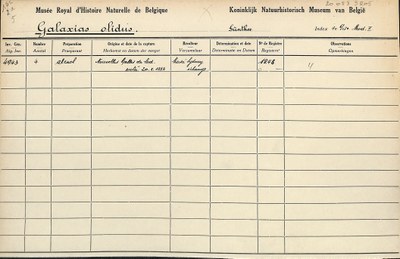 Musée Royal d'Histoire Naturelle de Belgique
Koninklijk Natuurhistorisch Museum van België
Galaxias olidus.
Günther
Index de
Inv. Gen.
Alg. Inv.
Nombre
Aantal
Préparation
Preparaat
Origine et date de la capture
Herkomst en datum der vangst
Récolteur
Verzamelaar
Détermination et date
Determinatie en Datum
N° de Registre
Registernr.
Observations
Opmerkingen
4943
4
alcool
Nouvelles Galles du Sud.
Sydney
échange
1808
"